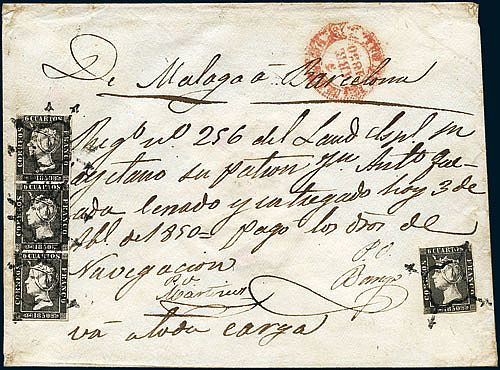 De Malaga á Barcelona
Reg.º nº 256 del Laud Espl Sn
Cayetano su patron Jn Antº
lenado y entregado hoy 3 de
Abl. de 1850 = pago los dros de
Navegacion
P.O.
Martinez
va a toda carga
6 CUARTOS
CORREOS
FRANCO
1850
6 CUARTOS
CORREOS
FRANCO
1850
6 CUARTOS
CORREOS
FRANCO
1850
6 CUARTOS
CORREOS
FRANCO
1850